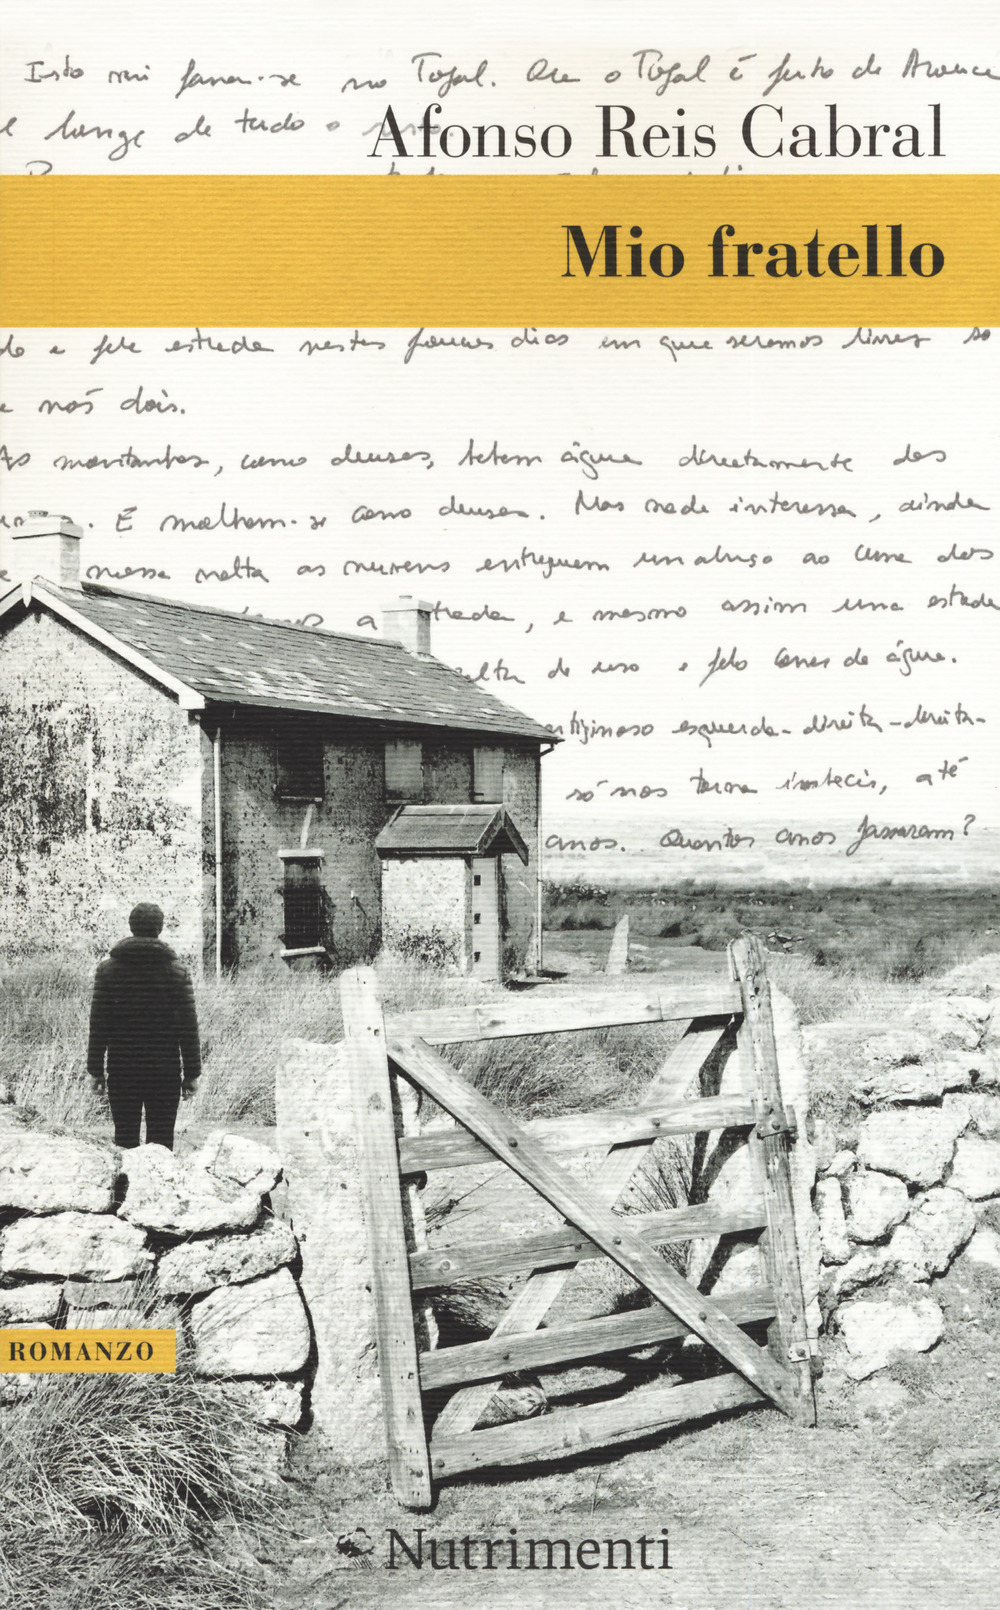 Isto vai passar-se no Tojal. Ora o Tojal é perto de Arouca
e longe de tudo o resto.
Afonso Reis Cabral
Mio fratello
e pela estrada nestes poucos dias em que seremos livres só
e nós dois.
As montanhas, como deuses, bebem água directamente dos
. E molham-se como deuses. Mas nada interessa, ainda
nossa volta as nuvens entreguem um abraço ao cume dos
a estrada, e mesmo assim uma estrada
falta de uso e pelo correr de água.
vertiginoso esquerda-direita-direita-
só nos torna imbecis, até
anos. Quantos anos passaram?
ROMANZO
Nutrimenti